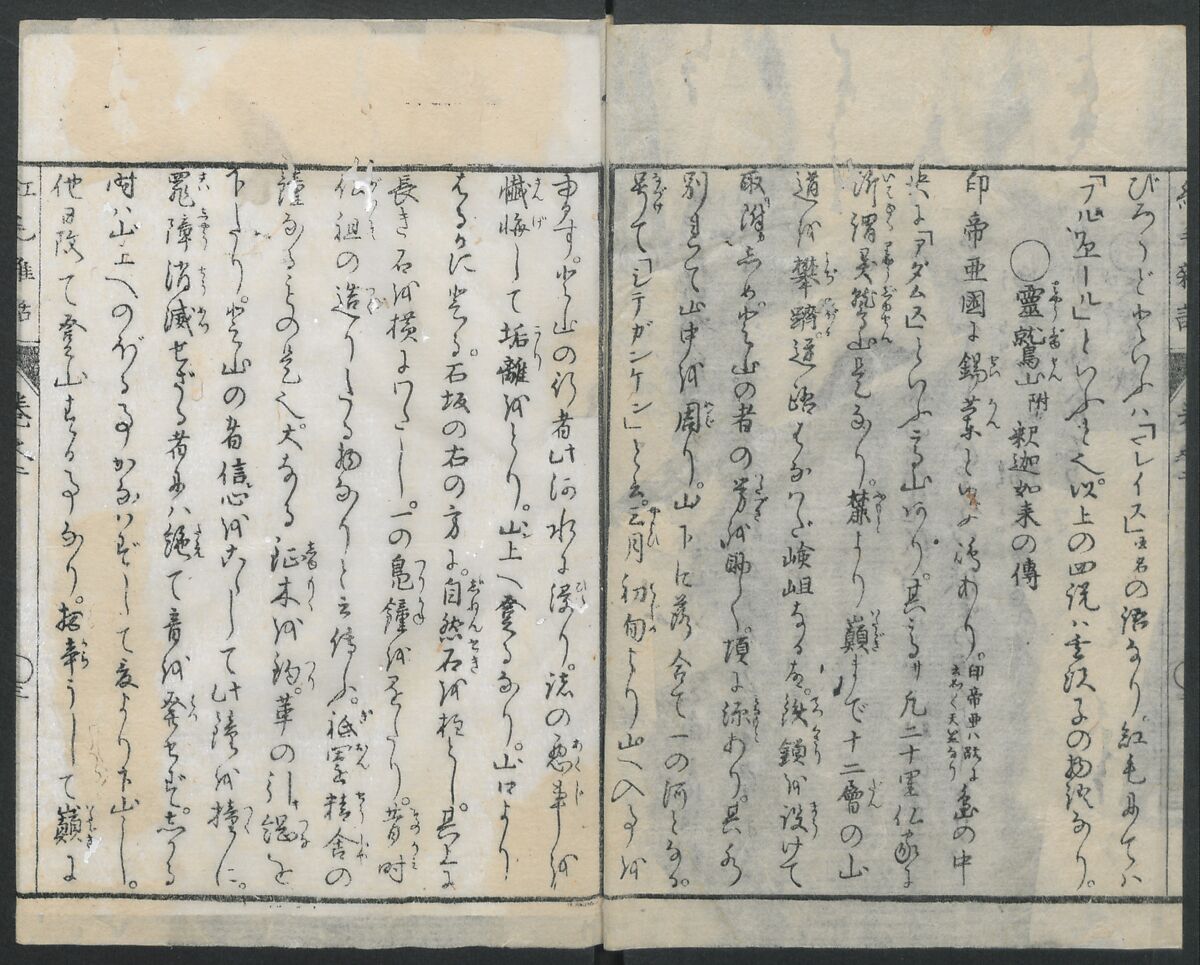 びろうどといふハ「イレイス」国名の語なり。紅毛にてハ
「フルエール」といふと也。以上の四説ハ玄沢子の物語なり。
〇靈鷲山附釈迦如来の傳
印帝亜國に錫蘭といふ嶋あり。印帝亜ハ 天竺なり の中
央に「アダムス」といふ高山あり。其高サ凡二十里仏家に
所謂霊鷲山是なり。麓より巓まで十二層の山
道を攀躋。逕路もなハだ嶮岨なる故。鉄鎖を設けて
取附しめ。登山の者の労を助く。頂に源あり。其水
別れて山中を周り。山下に落合て一の河となる。
号て「シテガンケン」と云。三月初旬より山へ入る事を
ゆるす。登山の行者此河水に浸り。諸の悪事を
懺悔して垢離をとり。山上へ登るなり。山口より
はるかに登る。石坂の右の方に。自然石を柱とし。其上に
長き石を横にわたし。一の鳧鐘を置たり。昔時
仏祖の造りたる物なりと云傳ふ。祇園精舎の
鐘なるもの是也。大なる 木を釣。革の引綱を
下したり。登山の者信心をこらして此鐘を撞に。
罪障消滅せざる者にハ絶て音を発せず。しかる
時ハ山上へのぼる事かなハずして夫より下山し。
他日改て登山する事なり。拟辛うして巓に
紅毛雑話
巻之一